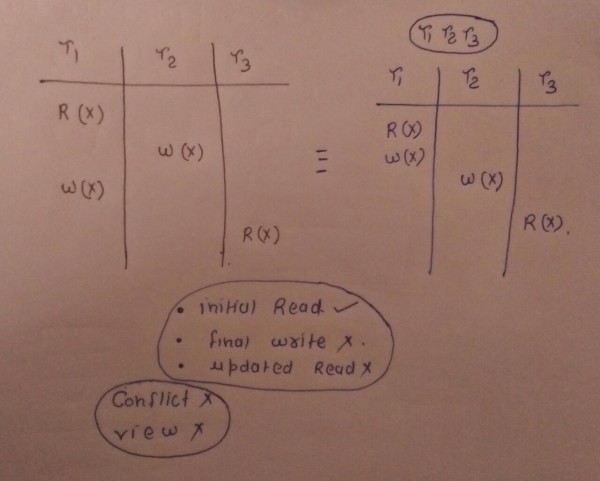 T1 T2 T3
R(x)
W(x)
W(x)
R(x)
≡
T1 T2 T3
T1 T2 T3
R(x)
W(x)
W(x)
R(x).
• initial Read ✓
• final write x.
• updated Read x
Conflict x
view x